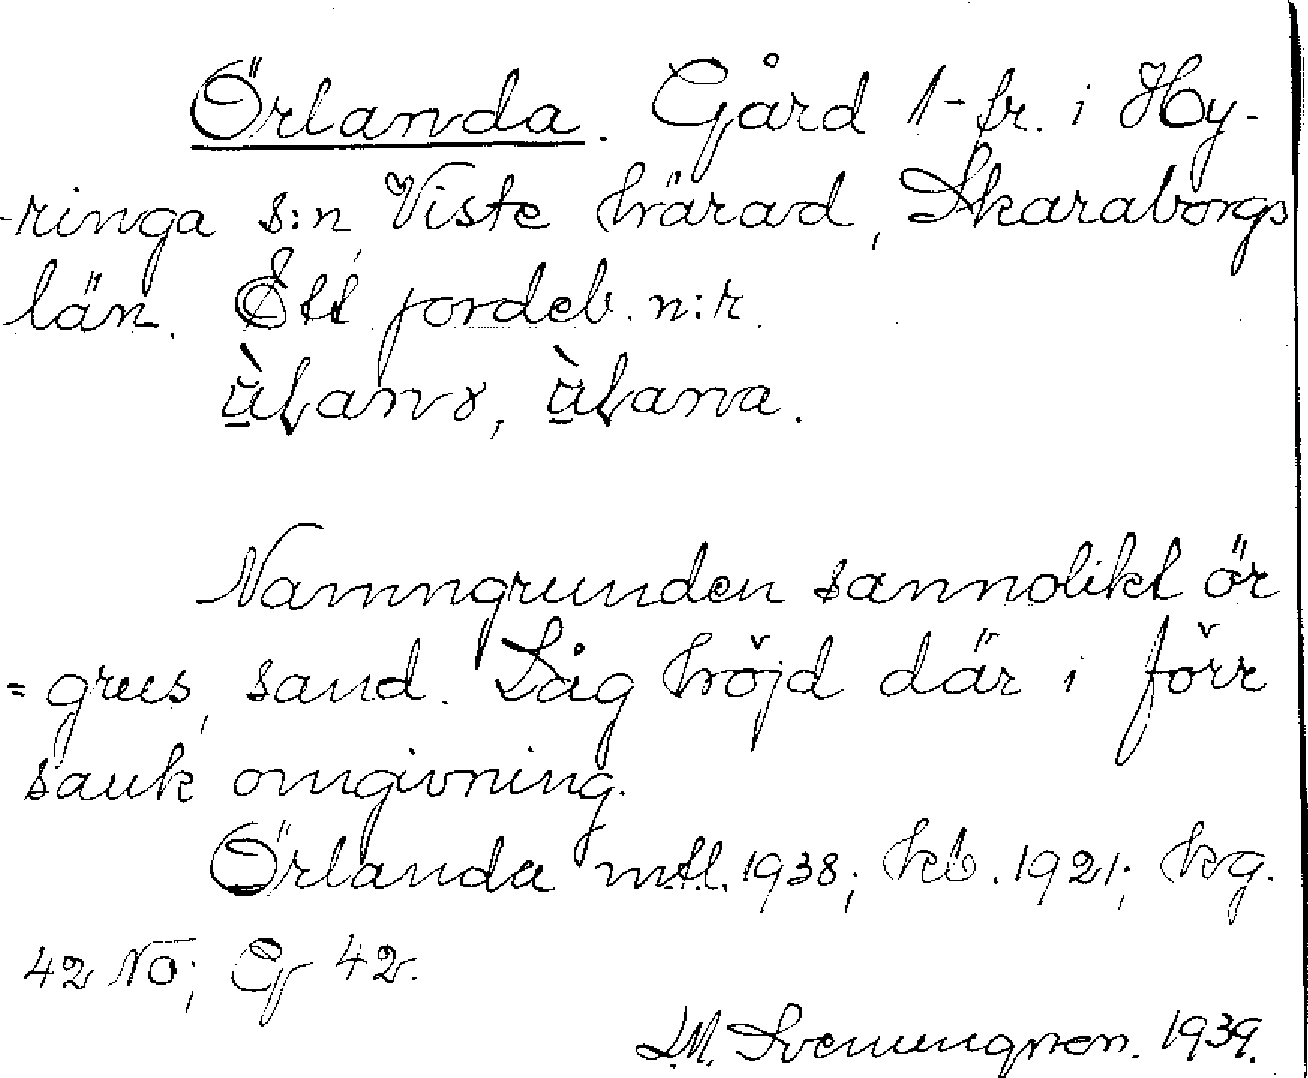 Örlanda. Gård 1-fr. i Hy-
-ringa s:n, Viste härad, Skaraborgs
län. Ett jordeb. n:r.

Namngrunden sannolikt ör
= grus, sand. Låg höjd där i förr
sank omgivning.
Örlanda mtl. 1938; kb. 1921; hg.
42 NO; Gf 42.
L.M. Svenungsson. 1939.